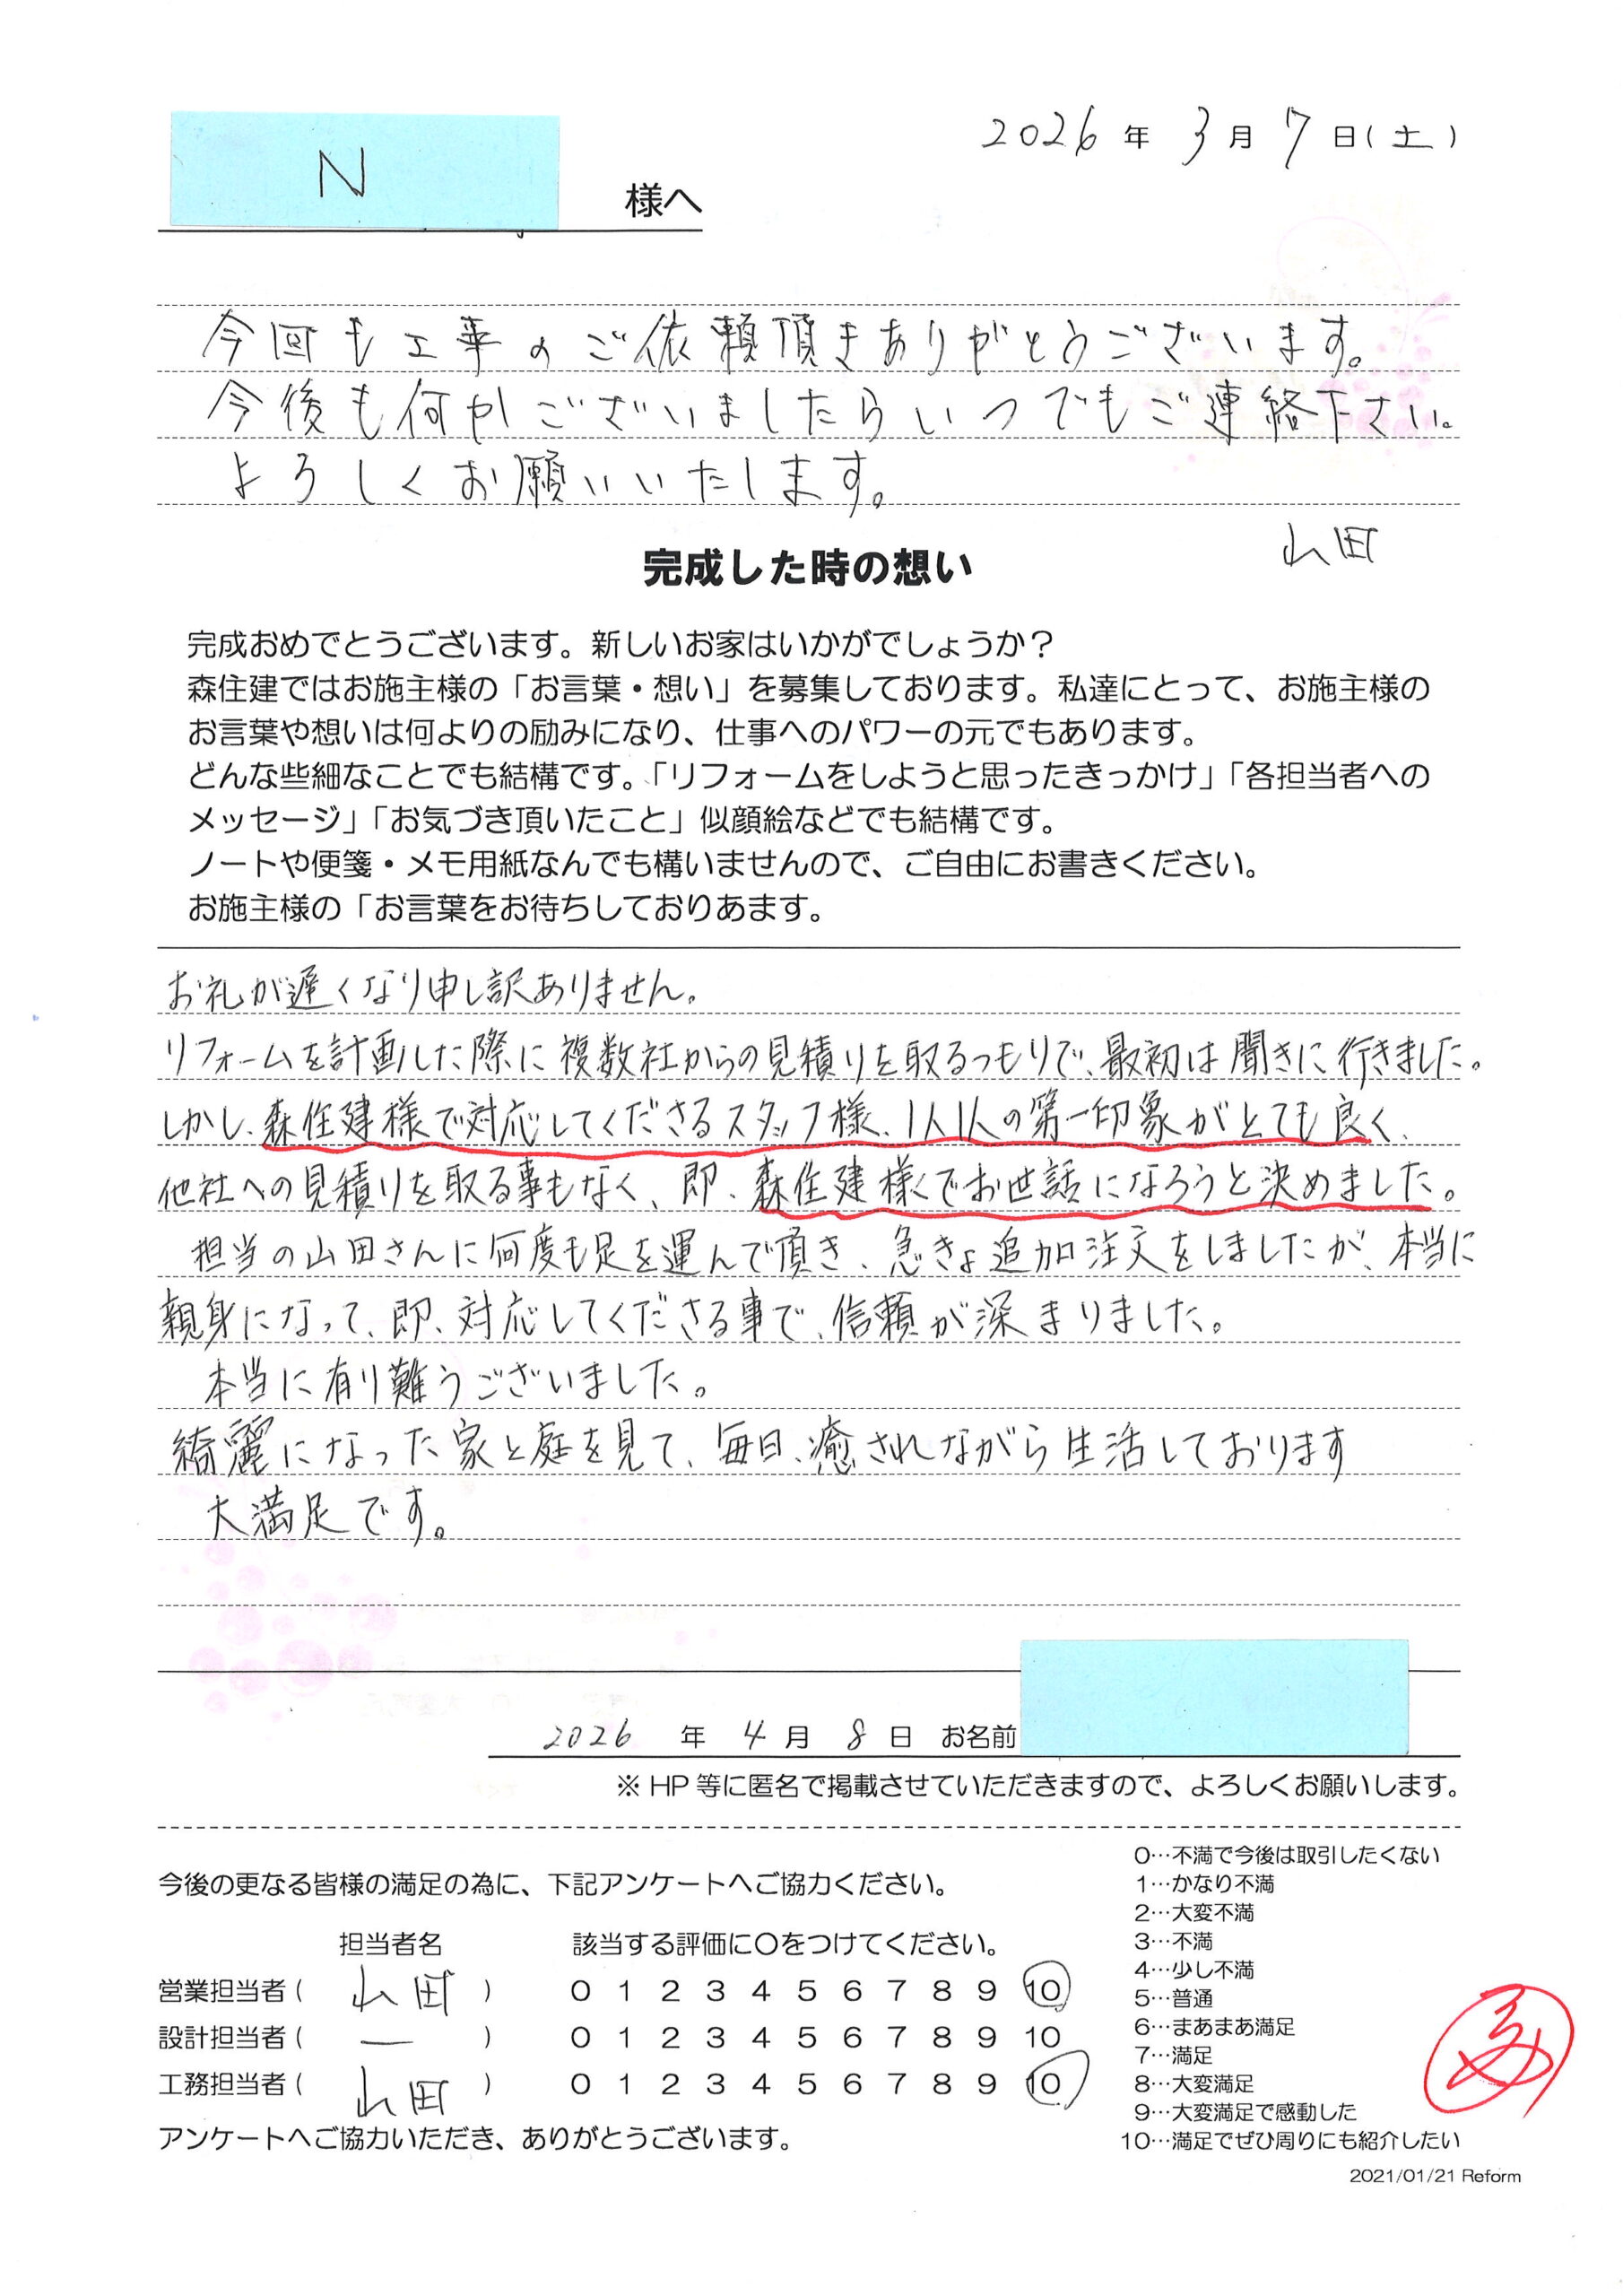 2026年3月7日(土)
N 様へ
今回も工事のご依頼頂きありがとうございます。
今後も何かございましたらいつでもご連絡下さい。
よろしくお願いいたします。
山田
完成した時の想い
完成おめでとうございます。新しいお家はいかがでしょうか？
森住建ではお施主様の「お言葉・想い」を募集しております。私達にとって、お施主様の
お言葉や想いは何よりの励みになり、仕事へのパワーの元でもあります。
どんな些細なことでも結構です。「リフォームをしようと思ったきっかけ」「各担当者への
メッセージ」「お気づき頂いたこと」似顔絵などでも結構です。
ノートや便箋・メモ用紙なんでも構いませんので、ご自由にお書きください。
お施主様の「お言葉をお待ちしておりあます。
お礼が遅くなり申し訳ありません。
リフォームを計画した際に複数社からの見積りを取るつもりで、最初は聞きに行きました。
しかし、森住建様で対応してくださるスタッフ様、1人1人の第一印象がとても良く、
他社への見積りを取る事もなく、即、森住建様でお世話になろうと決めました。
担当の山田さんに何度も足を運んで頂き、急きょ追加注文をしましたが、本当に
親身になって、即、対応してくださる事で、信頼が深まりました。
本当に有り難うございました。
綺麗になった家と庭を見て、毎日、癒されながら生活しております
大満足です。
2026年4月8日 お名前
※HP等に匿名で掲載させていただきますので、よろしくお願いします。
今後の更なる皆様の満足の為に、下記アンケートへご協力ください。
担当者名 該当する評価に○をつけてください。
営業担当者( 山田 ) 0 1 2 3 4 5 6 7 8 9 10
設計担当者( ― ) 0 1 2 3 4 5 6 7 8 9 10
工務担当者( 山田 ) 0 1 2 3 4 5 6 7 8 9 10
アンケートへご協力いただき、ありがとうございます。
0…不満で今後は取引したくない
1…かなり不満
2…大変不満
3…不満
4…少し不満
5…普通
6…まあまあ満足
7…満足
8…大変満足
9…大変満足で感動した
10…満足でぜひ周りにも紹介したい
2021/01/21 Reform